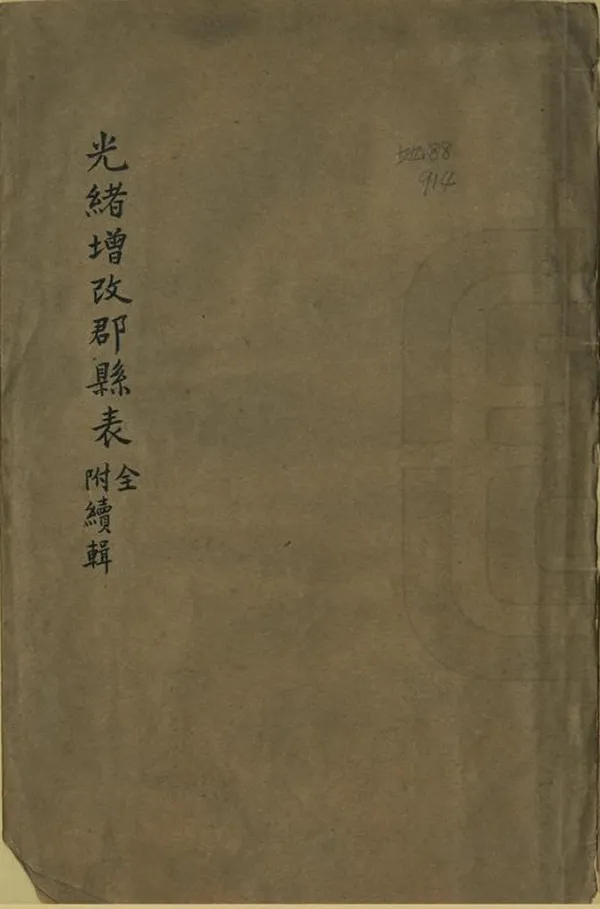 光緒增改郡縣表
全
附續輯
地88
914